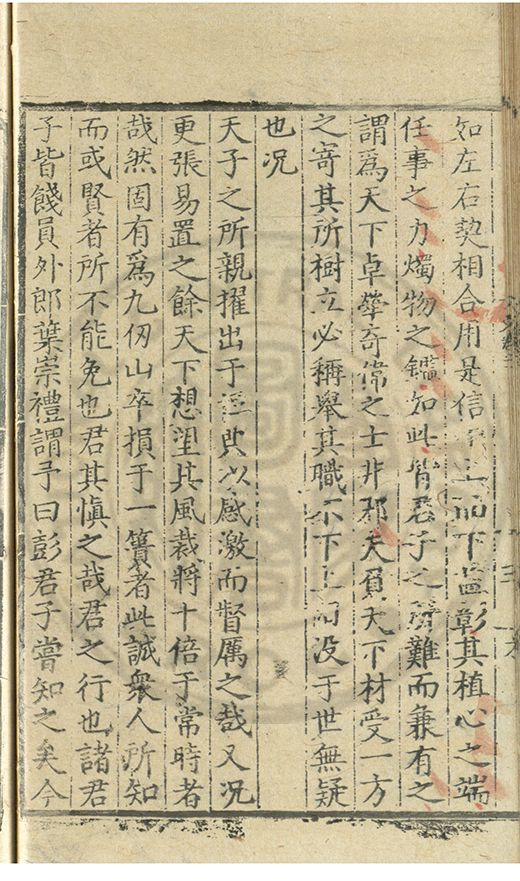 如左右契相合用是信于上而下益彰其植心之端
任事之力燭物之鑑如此皆君子之所難而兼有之
謂爲天下卓犖奇偉之士非耶夫負天下材受一方
之寄其所樹立必稱舉其職不下上而没于世無疑
也况
天子之所親擢出于以感激而督厲之哉又况
更張易置之餘天下想望其風裁將十倍于常時者
哉然固有爲九仭山卒損于一簣者此誠衆人所知
而或賢者所不能免也君其慎之哉君之行也諸君
子皆餞員外郎葉崇禮謂予曰彭君子嘗知之矣今